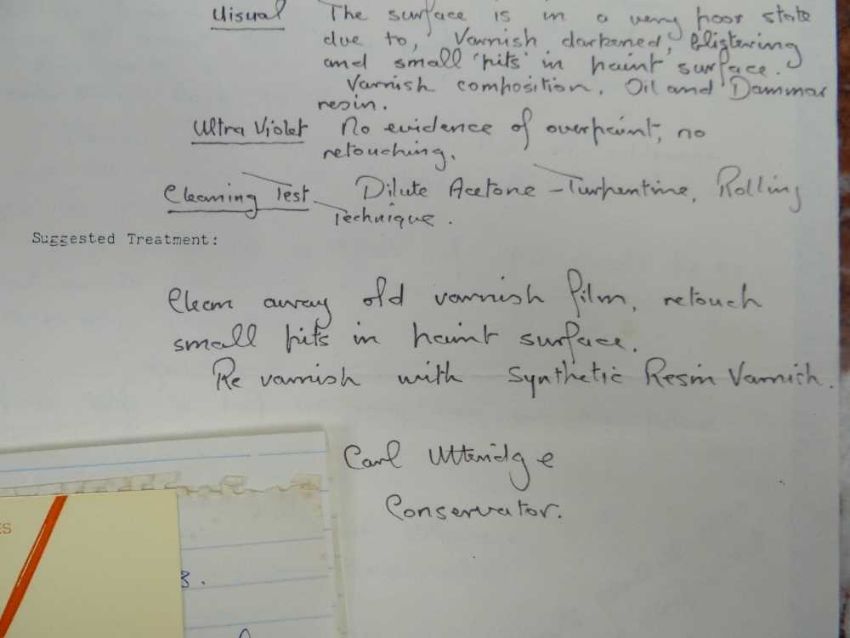 Visual The surface is in a very poor state
due to, Varnish darkened, blistering
and small 'pits' in paint surface.
Varnish composition. Oil and Dammar
resin.
Ultra Violet No evidence of overpaint, no
retouching.
Cleaning Test Dilute Acetone - Turpentine, Rolling
Technique.
Suggested Treatment:
Clean away old varnish film, retouch
small pits in paint surface.
Re varnish with Synthetic Resin Varnish.
Carl Utteridge
Conservator.
ES
8.